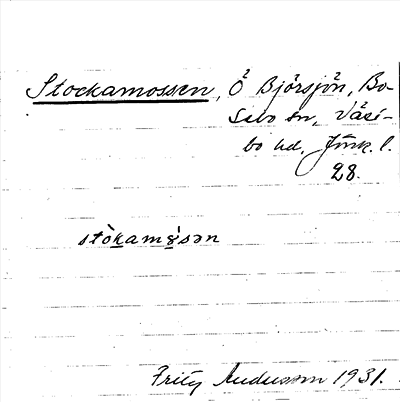 Stockamossen, Ö² Björsjön, Bo-
sebo sn, Väst-
bo hd, Jönk. l.
28.
stòkamo̤̍sən
Fritz Andersson 1931.